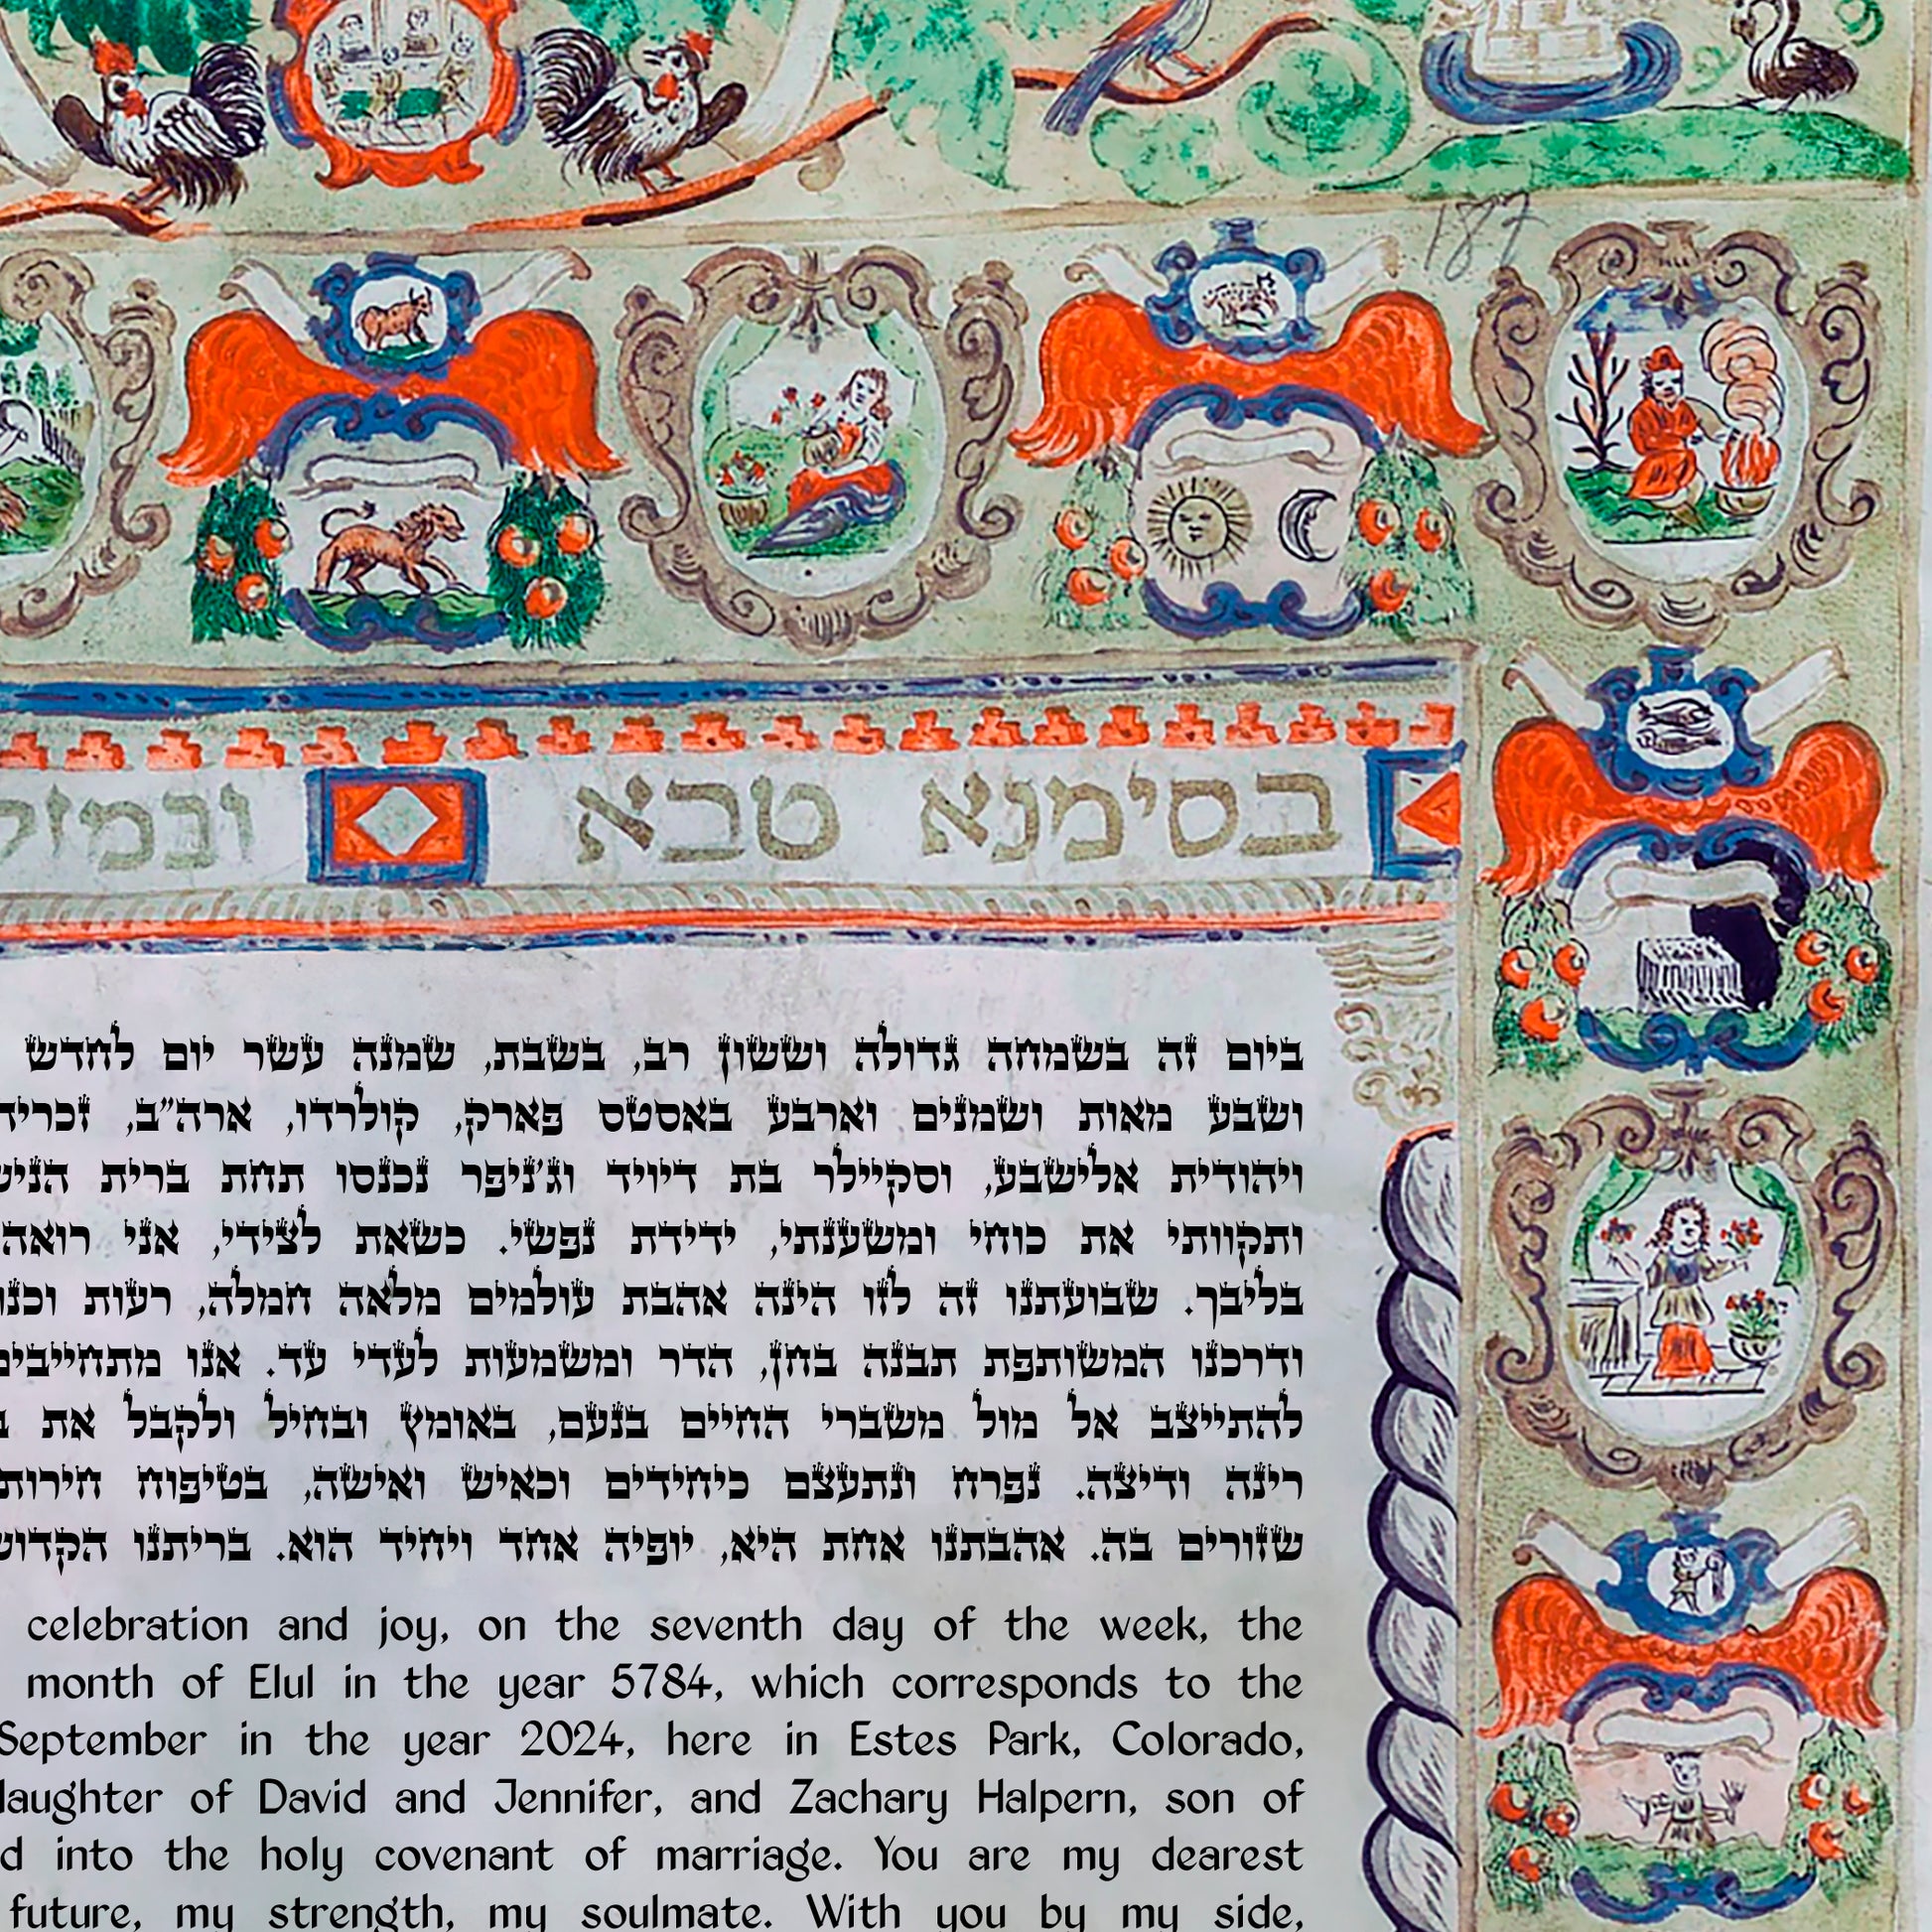 187
בסימנא טבא ובמזל
ביום זה בשמחה גדולה וששון רב, בשבת, שמנה עשר יום לחדש
ושבע מאות ושמנים וארבע באסטס פארק, קולרדו, ארה״ב,
ויהודית אלישבע, וסקיילר בת דיויד וג׳ניפר נכנסו תחת ברית
ותקוותי את כוחי ומשענתי, ידידת נפשי. כשאת לצידי, אני רואה
בליבך. שבועתנו זה לזו הינה אהבת עולמים מלאה חמלה, רעות
ודרכנו המשותפת תבנה בחן, הדר ומשמעות לעדי עד. אנו
להתייצב אל מול משברי החיים בנעם, באומץ ובחיל ולקבל את
רינה ודיצה. נפרח ונתעצם כיחידים וכאיש ואישה, בטיפוח
שזורים בה. אהבתנו אחת היא, יופיה אחד ויחיד הוא. בריתנו
celebration and joy, on the seventh day of the week, the
month of Elul in the year 5784, which corresponds to the
September in the year 2024, here in Estes Park, Colorado,
daughter of David and Jennifer, and Zachary Halpern, son of
into the holy covenant of marriage. You are my dearest
future, my strength, my soulmate. With you by my side,